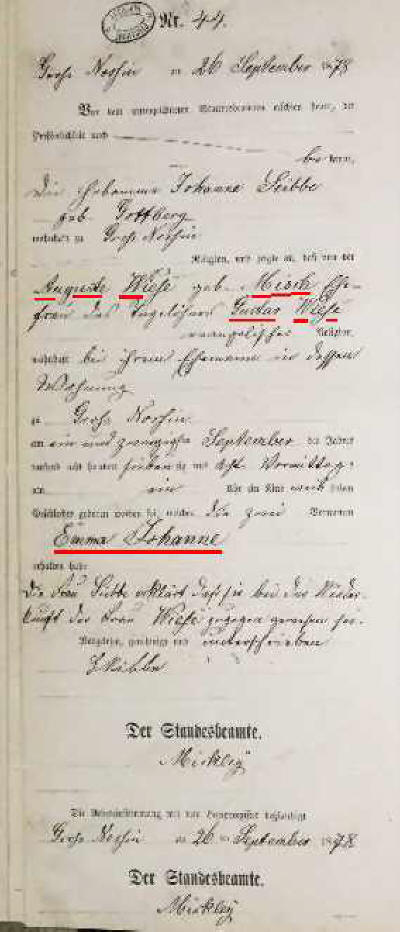 Nr. 44.
Gross Nossin am 26 September 1878
Vor dem unterzeichneten Standesbeamten erschien heute, der
Persönlichkeit nach
bekannt,
die Hebamme Johanne Libbe
geb. Gottberg
wohnhaft zu Gross Nossin
Religion, und zeigte an, daß von der
Auguste Wiese geb. Misch Ehe-
frau des Tagelöhners Gustav Wiese
evangelischer Religion,
wohnhaft bei ihrem Ehemanne in dessen
Wohnung
zu Gross Nossin
am ein und zwanzigsten September des Jahres
tausend acht hundert siebenzig und acht Vormittags
um ein Uhr ein Kind weiblichen
Geschlechts geboren worden sei, welches die zwei Vornamen
Emma Johanne
erhalten habe
Die Frau Libbe erklärt daß sie bei der Nieder-
kunft der Frau Wiese zugegen gewesen sei.
Vorgelesen, genehmigt und unterschrieben
Der Standesbeamte.
Mickley
Die Uebereinstimmung mit dem Hauptregister beglaubigt
Gross Nossin am 26 ten September 1878
Der Standesbeamte.
Mickley